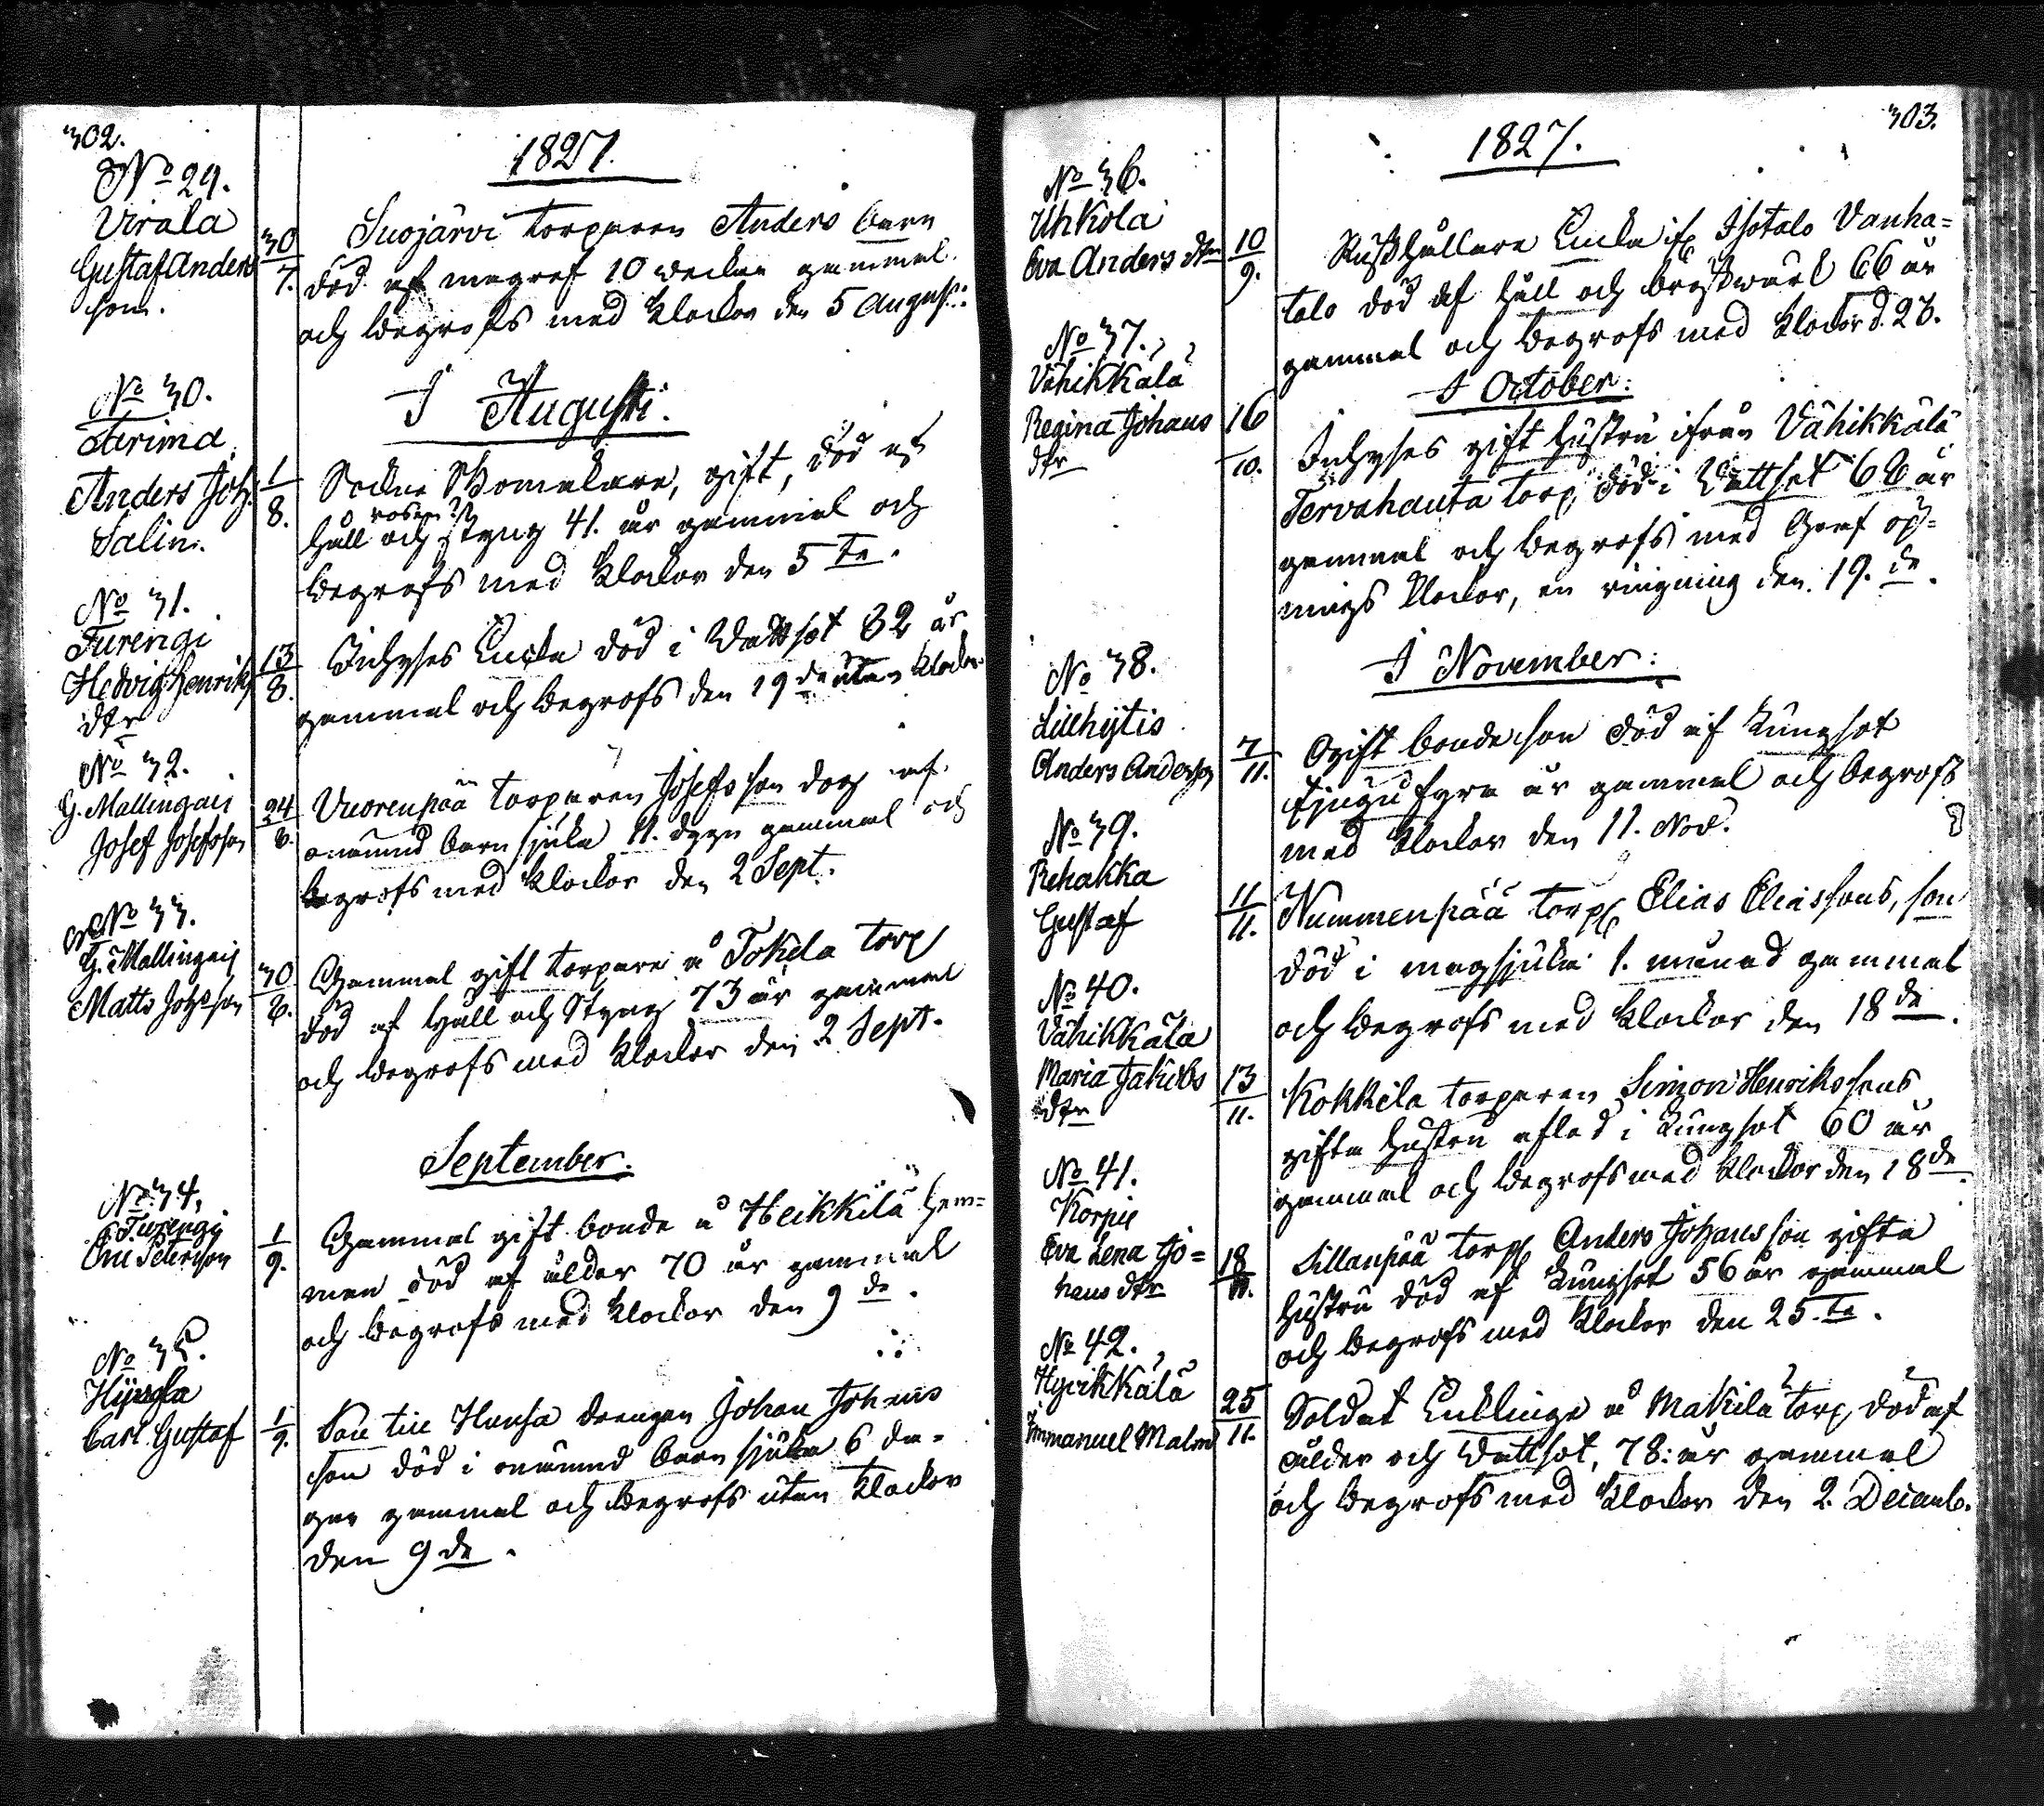 302.
1827.
No 29.
Virala
Gustaf Anders
son.
30
7.
Suojärvi torparen Anders barn
död af magref 10 veckor gammal
och begrofs med klockor den 5 August:
I Augusti.
No 30.
Tarima
Anders Joh:
Salin.
1
8.
Sockne Skomakare, gift, död af
håll och rosen styng 41. år gammal och
begrofs med klockor den 5 te.
No 31.
Turengi
Hedvig Henriks
dtr
13
8.
Inhyses Enka död i Wattsot 82 år
gammal och begrofs den 19 de utan klockor
No 32.
G. Mallingais
Josef Josefsson
24
8.
Vuorenpää torparen Josefs son dog af
onämnd barnsjuka 11. dygn gammal och
begrofs med klockor den 2 Sept.
No 33.
G. Mallingais
Matts Johsson
30
8.
Gammal gift torpare å Tokela torp
död af Håll och Styng 73 år gammal
och begrofs med klockor den 2 Sept.
September.
No 34.
Turengi
Eric Petersson
1
9.
Gammal gift bonde å Heikkilä hem=
man död af ålder 70 år gammal
och begrofs med klockor den 9 de.
No 35.
Carl Gustaf
1
9.
Son till drengen Johan Johans
son död i onämnd barnsjuka 6 da=
gar gammal och begrofs utan klockor
den 9 de.
303.
1827.
No 36.
Uhkola
Eva Anders dtr
10
9.
Rusthållare Enka if. Isotalo Vanha=
talo död af håll och bröstwärk 66 år
gammal och begrofs med klockor d. 23.
I October:
No 37.
Vähikkälä
Regina Johans
dtr
16
10.
Inhyses gift hustru ifrån Vähikkälä
Tervahauta torp, död i Wattsot 66 år
gammal och begrofs med Graf öp=
nings klockor, en ringning den 19. de.
I November:
No 38.
Liehytis
Anders Andersson
7
11.
Ogift bonde son död af Lungsot
tjugu fyra år gammal och begrofs
med klockor den 11. Nov.
No 39.
Rehakka
Gustaf
11
11.
Nummenpää torp. Elias Eliassons, son
död i magsjuka 1. månad gammal
och begrofs med klockor den 18 de.
No 40.
Vähikkälä
Maria Jakobs
dtr
13
11.
Kokkila torparen Simon Henrikssons
gifta hustru afled i Lungsot 60 år
gammal och begrofs med klockor den 18 de.
No 41.
Korpis
Eva Lena Jo=
hans dtr
18
11.
Sillanpää torp. Anders Johansson gifta
hustru död af Lungsot 56 år gammal
och begrofs med klockor den 25. te.
No 42.
Hyvikkälä
Immanuel Malm
25
11.
Soldat Enklinge å Mäkilä torp, död af
ålder och wattsot, 78: år gammal
och begrofs med klockor den 2. Decemb.